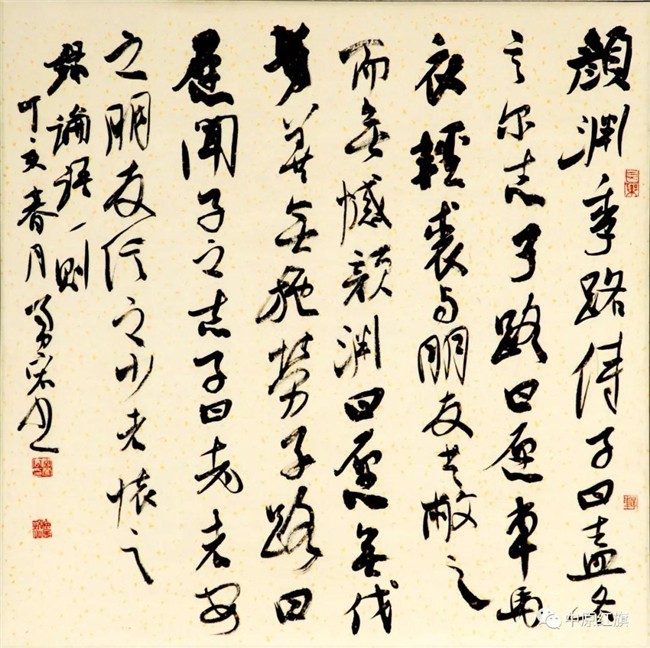 顏渊季路侍子曰盍各
言尔志子路曰愿車馬
衣輕裘与朋友共敝之
而無憾顏渊曰愿無伐
善無施勞子路曰
愿聞子之志子曰老者安
之朋友信之少者懷之
錄論語一则
丁亥春月
中原红旗